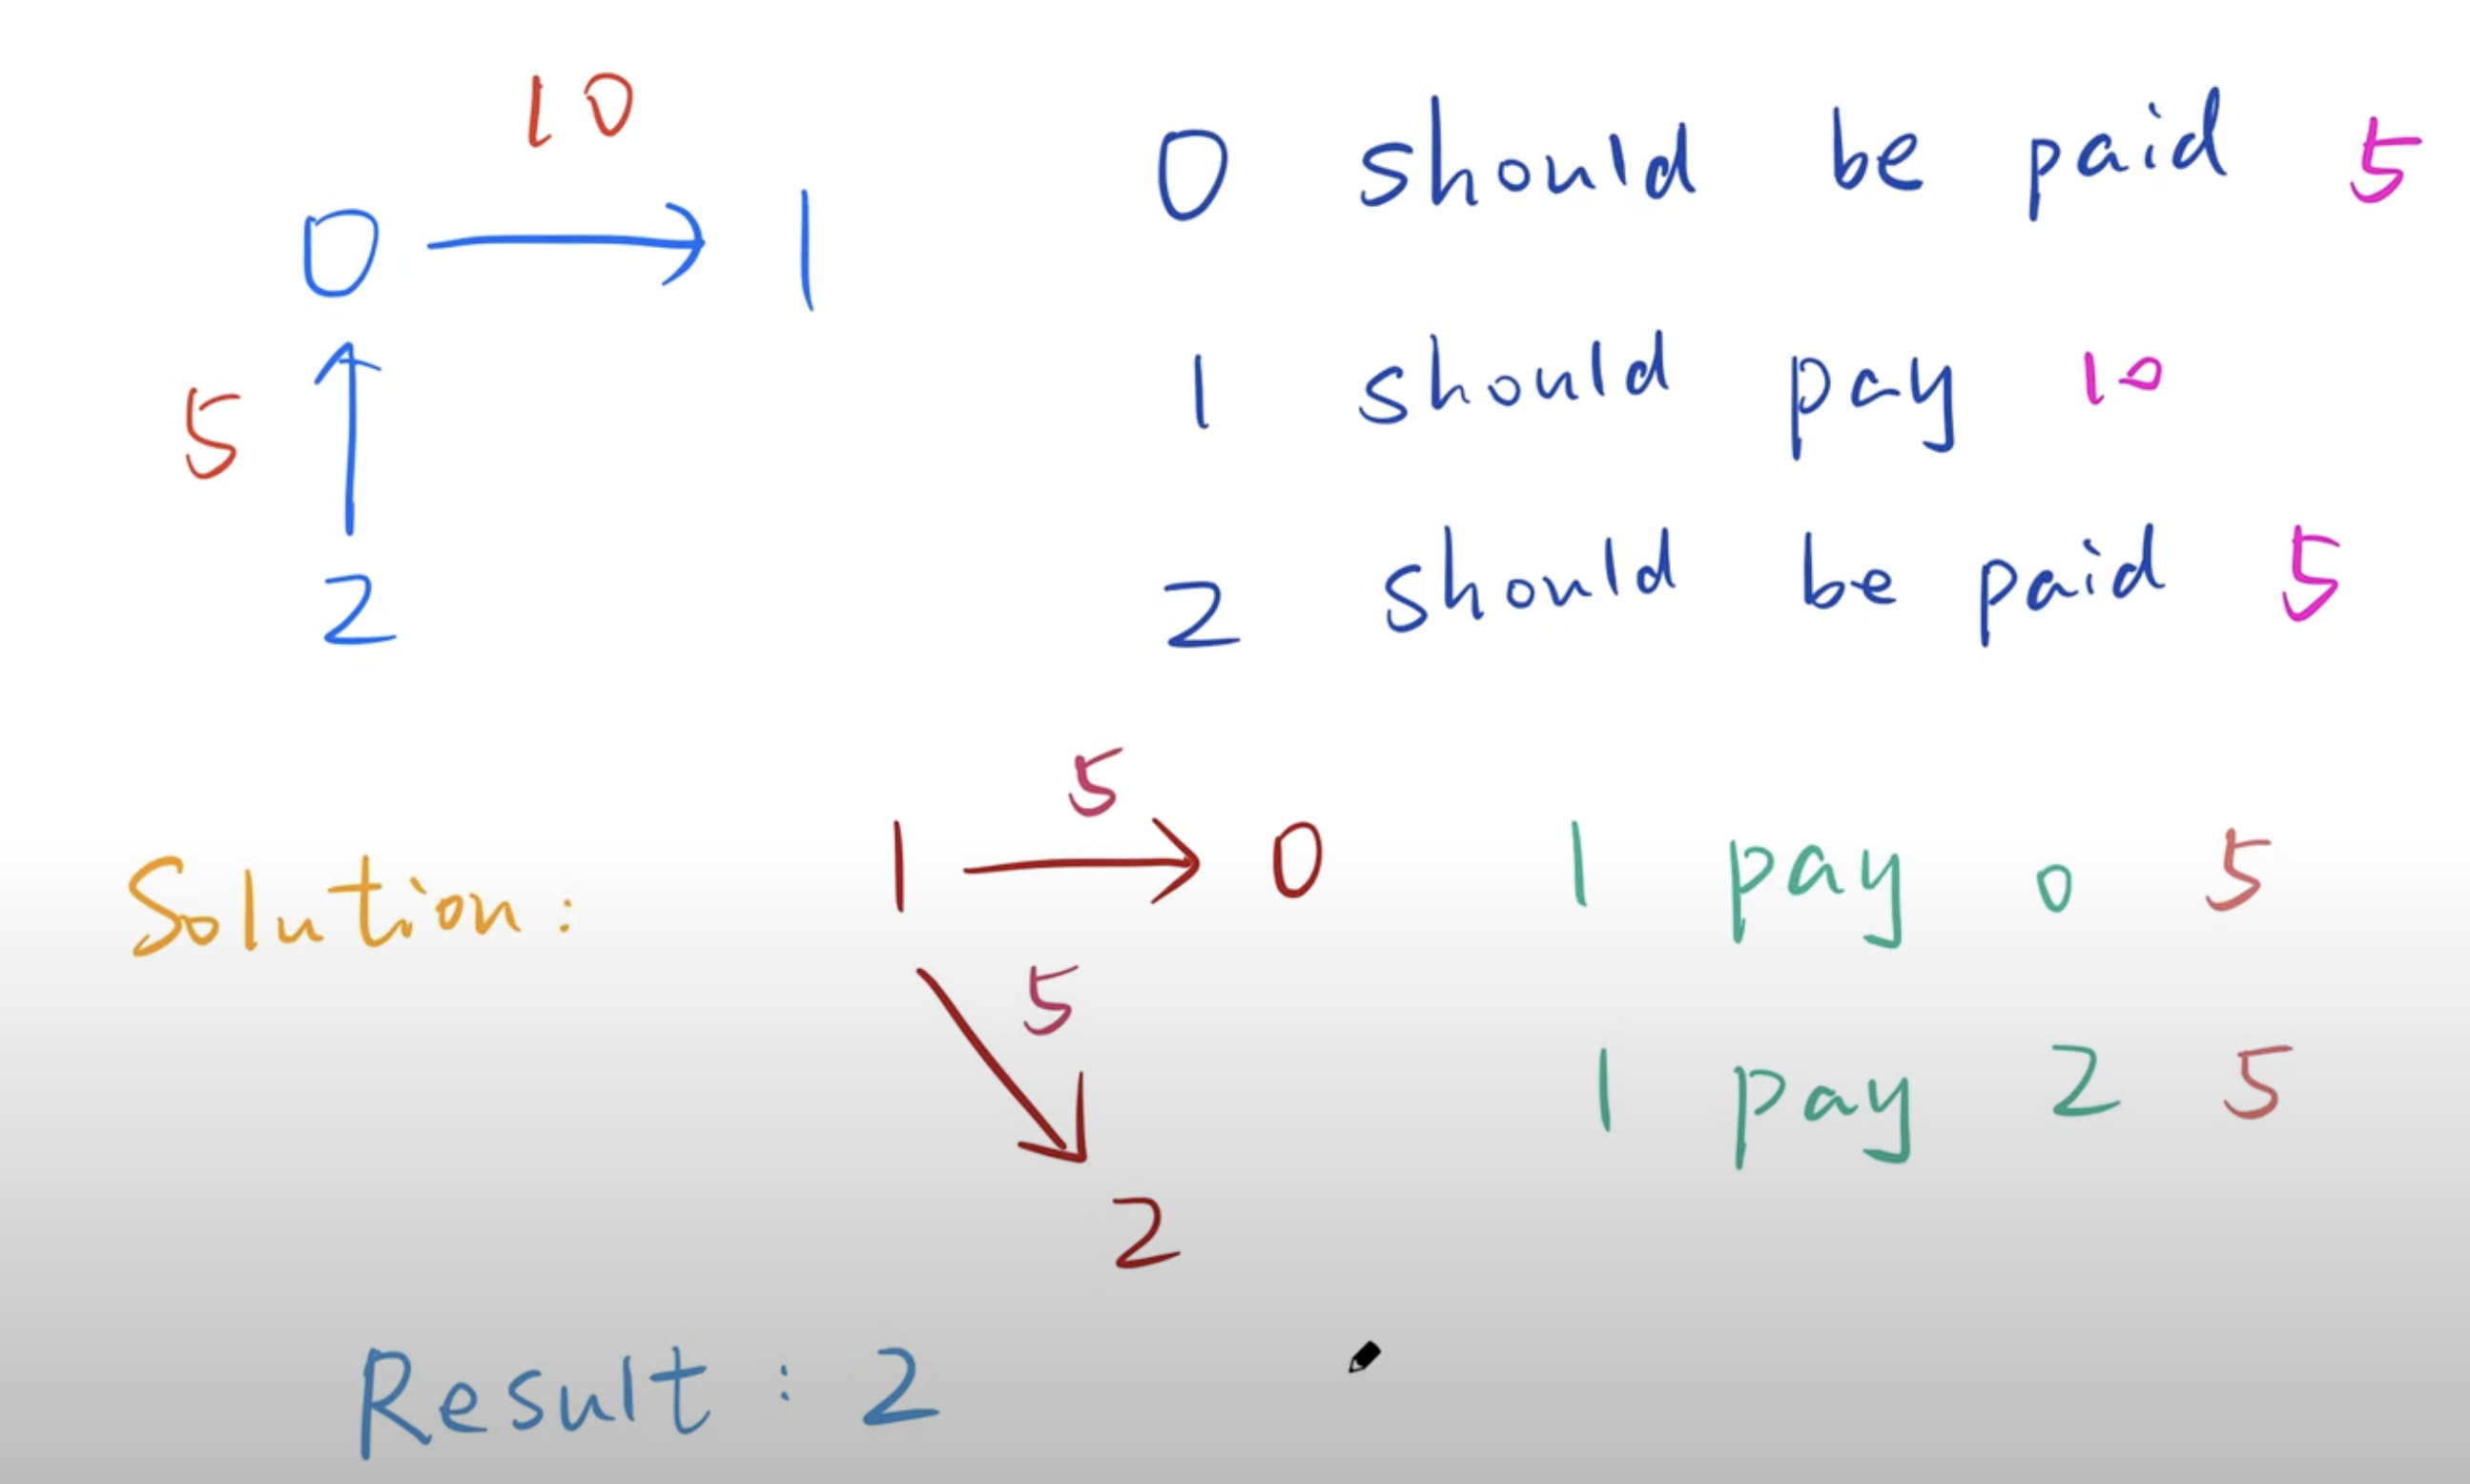 10
0 → 1
5
2
0 should be paid 5
1 should pay 10
2 should be paid 5
Solution:
5
1 → 0
5
2
1 pay 0 5
1 pay 2 5
Result: 2